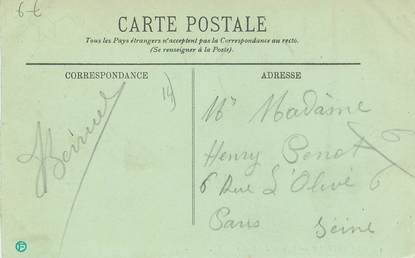 6 €
CARTE POSTALE
Tous les Pays étrangers n'acceptent pas la Correspondance au recto.
(Se renseigner à la Poste).
CORRESPONDANCE
ADRESSE
14
Madame
Henry
6 Rue L'Olive
Paris Seine